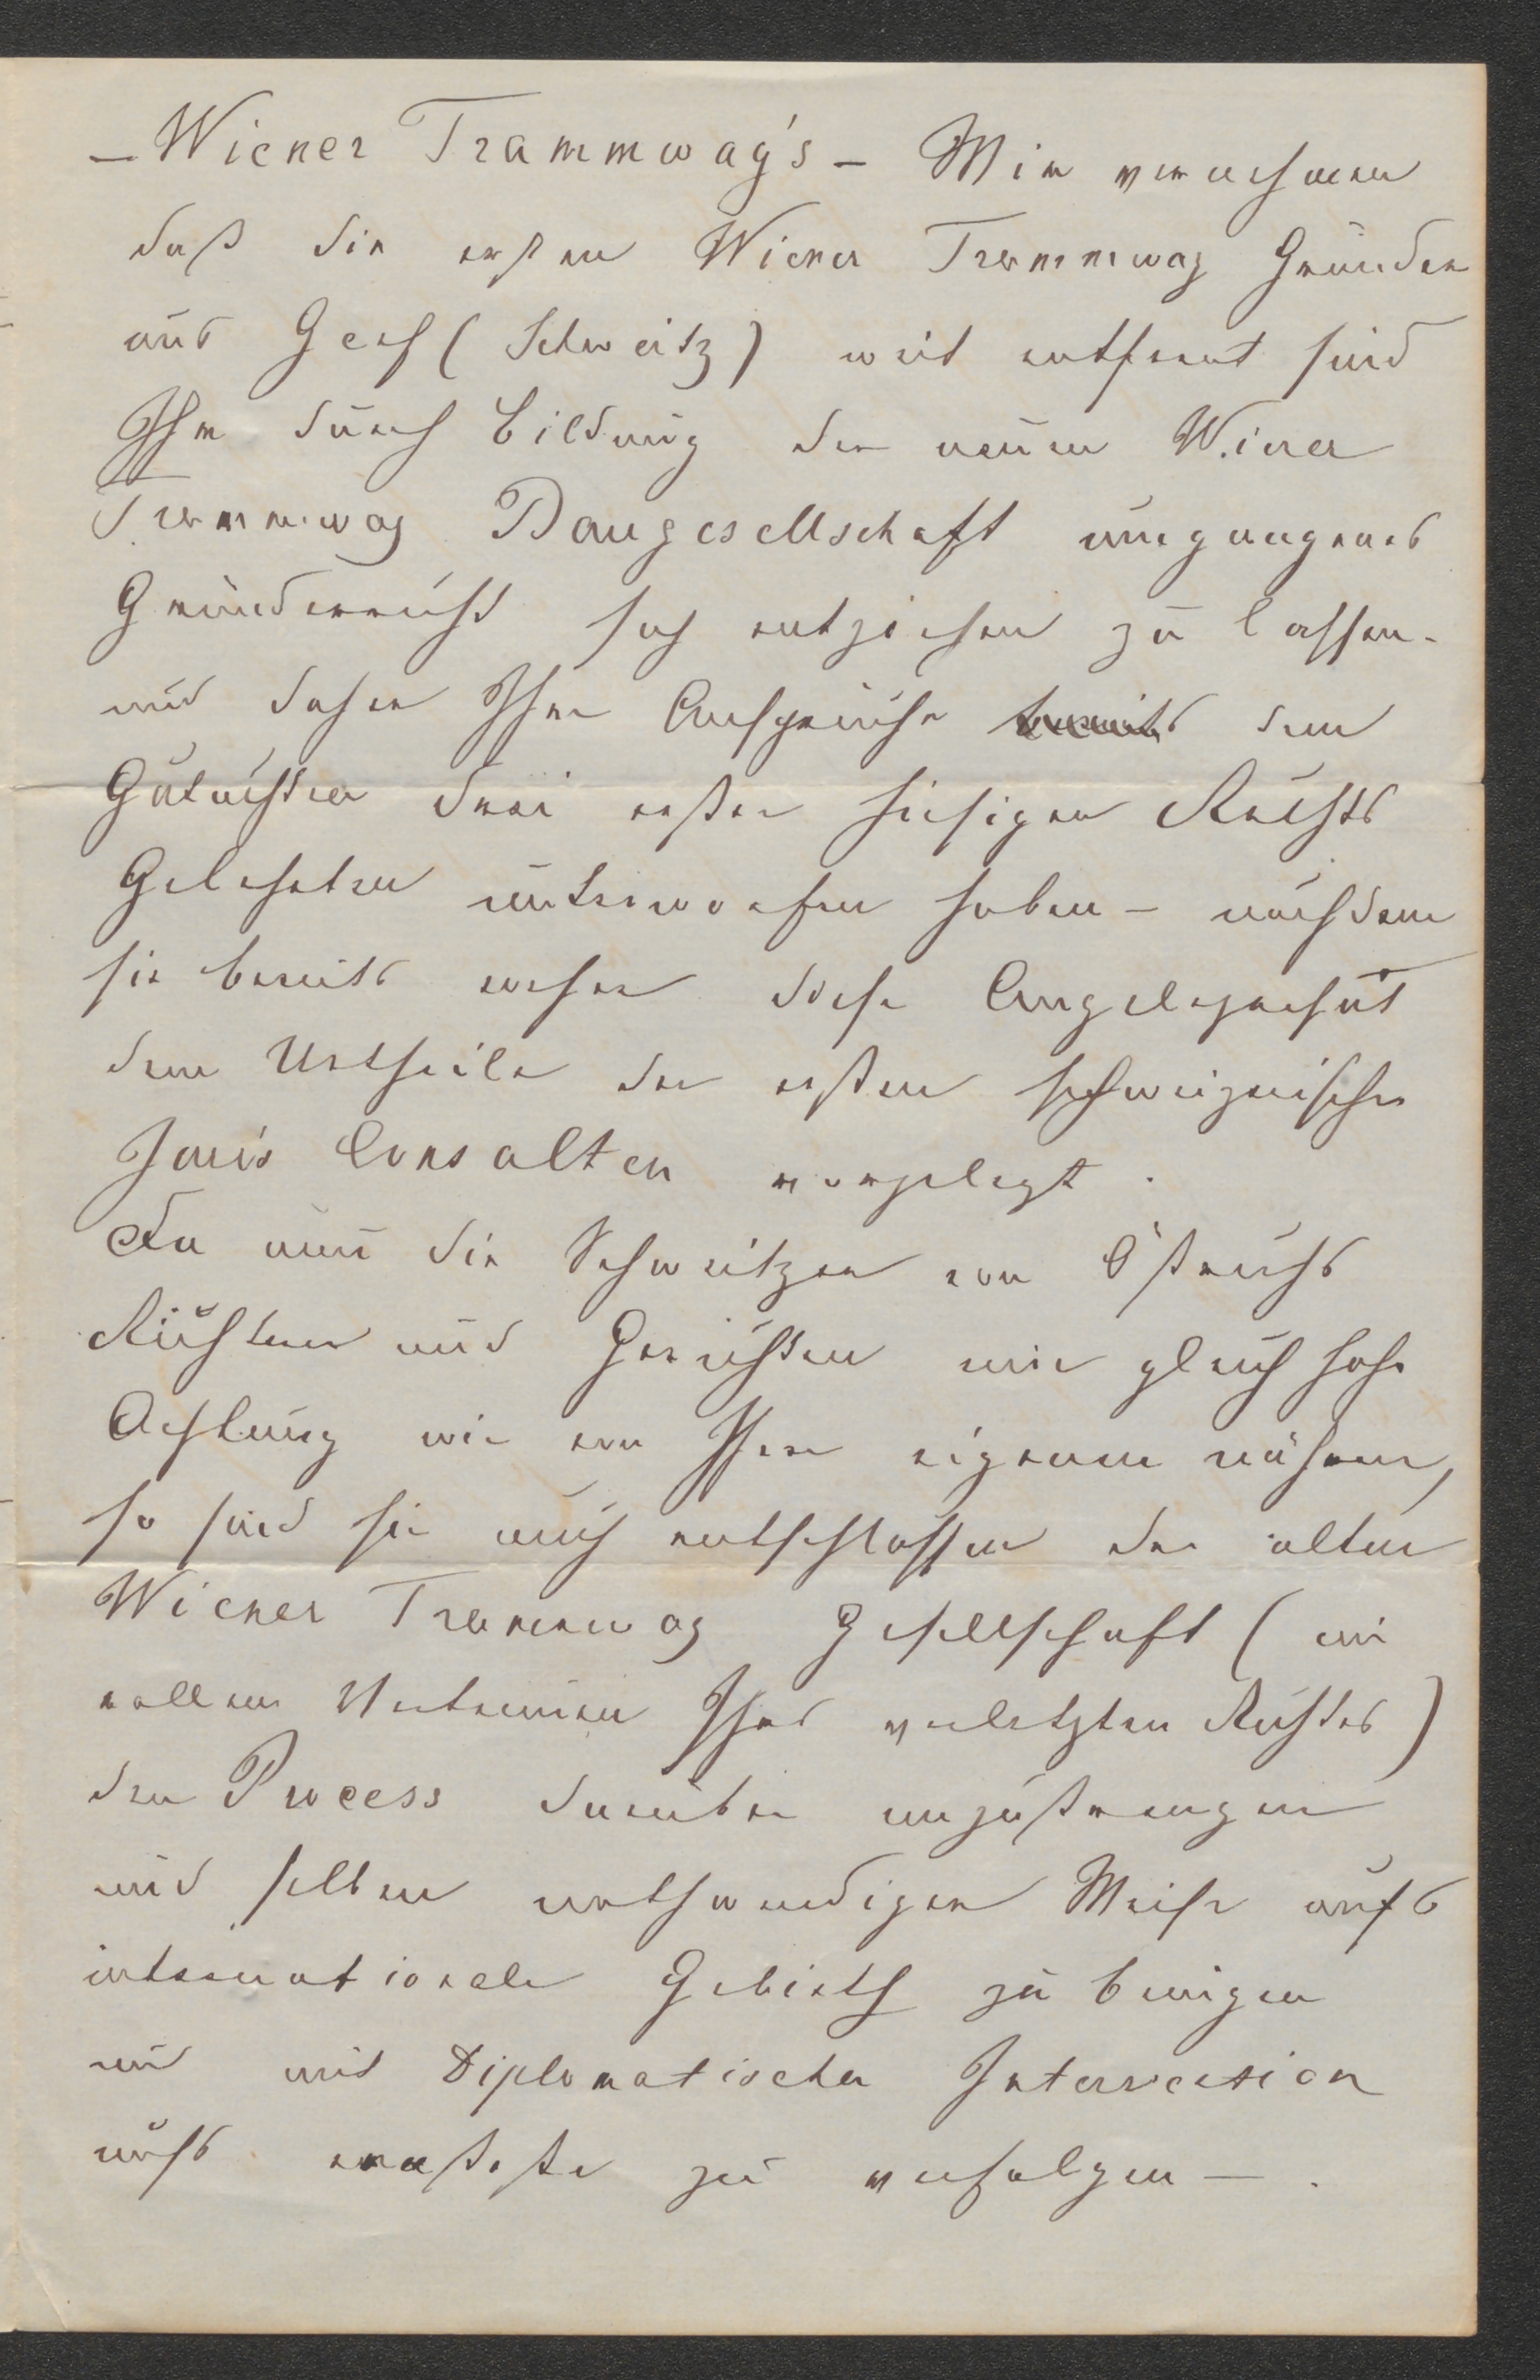 – Wiener Trammway's – Wir vernehmen
daß die ersten Wiener Trammway Gründer
aus Genf (Schweitz) weit entfernt sind
Ihr durch Bildung der neuen Wiener
Trammway Baugesellschaft umgangenes
Gründerrecht sich entziehen zu lassen –
und daher Ihre Ansprüche dem
Gutachten drei erster hiesiger Rechts
Gelehrten unterworfen haben – nachdem
sie bereits vorher diese Angelegenheit
dem Urtheile der ersten schweizerischen
Juris Consulten vorgelegt.
Da nun die Schweitzer von Östreichs
Richtern und Gerichten eine gleich hohe
Achtung wie von Ihren eigenen nähren,
so sind sie auch entschlossen der alten
Wiener Trammway Gesellschaft (im
vollen Vertrauen Ihres verletzten Rechtes)
den Process darüber anzustrengen
und selben nothwendiger Weise aufs
internationale Gebieth zu bringen
und mit Diplomatischer Intervention
aufs ernsteste zu verfolgen – .